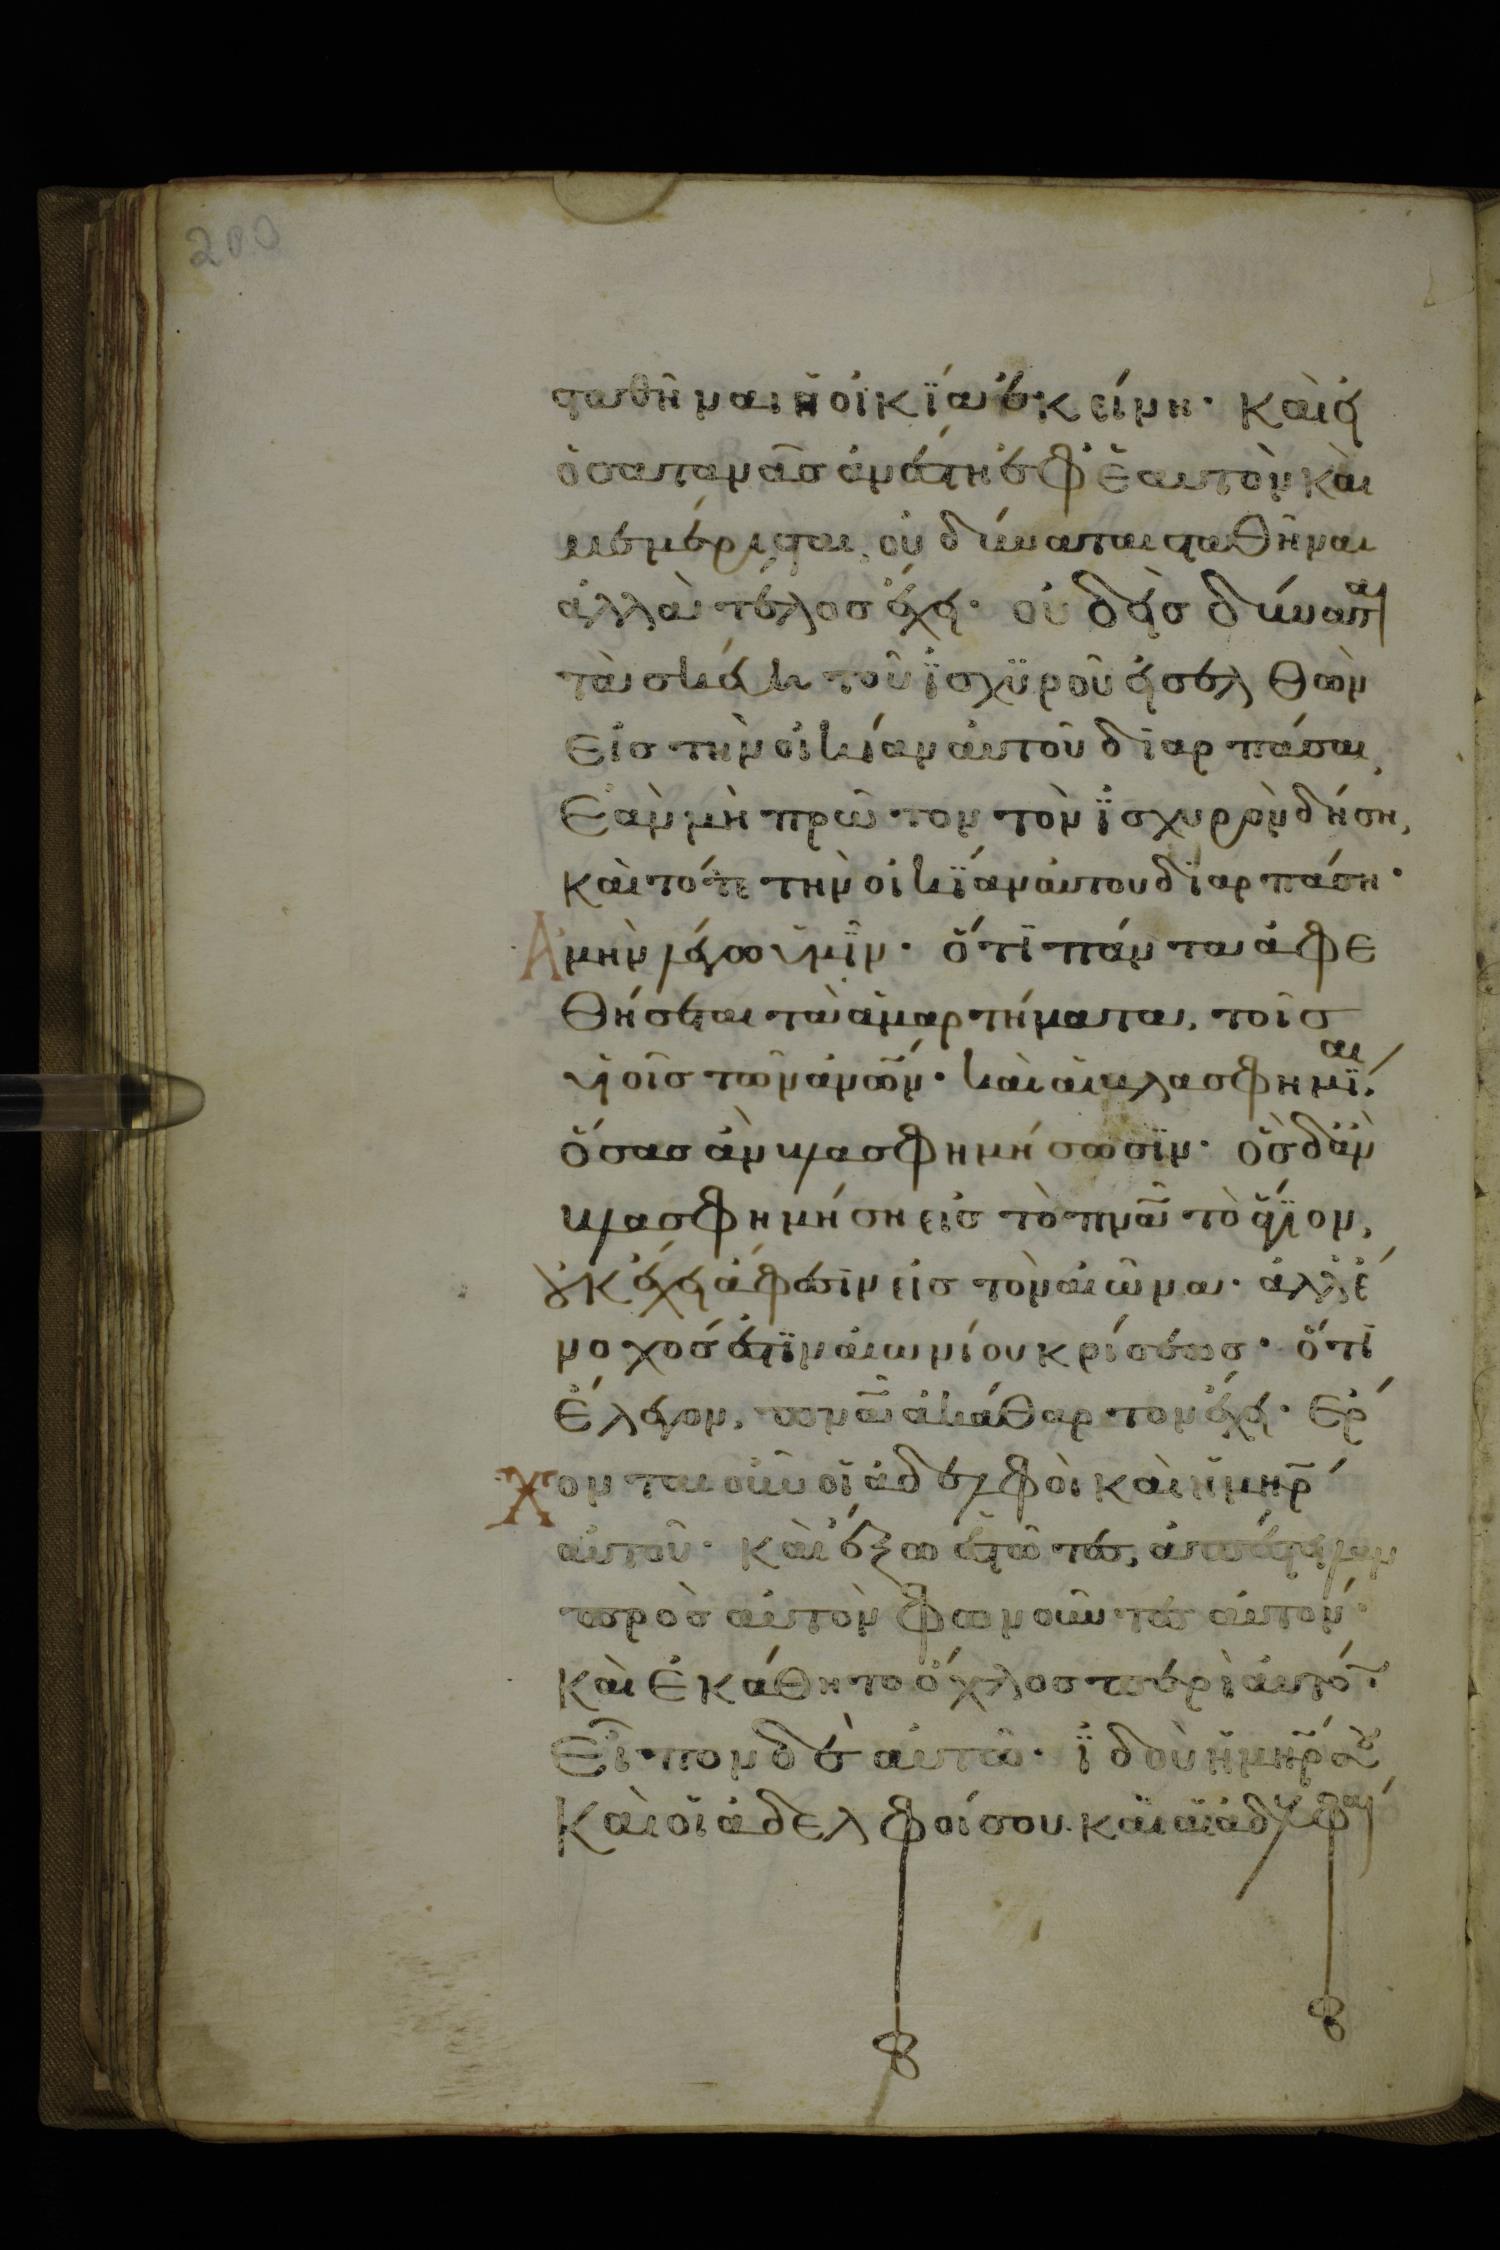 200
σταθῆναι ἡ οἰκΐα ἐκείνη· καὶ εἰ
ὁ σατανᾶσ ἀνέστη ἐφ ἑαυτὸν καὶ
μεμέρισται, οὐ δύναται σταθῆναι
ἀλλὰ τέλοσ ἔχει· οὐδεὶσ δύναται
τὰ σκεύη τοῦ ϊσχϋροῦ εἰσελθὼν
εἰσ τὴν οἰκίαν αὐτοῦ διαρπάσαι,
ἐὰν μὴ πρῶτον τὸν ϊσχυρὸν δήση,
καὶ τότε τὴν οἰκΐαν αὐτου δϊαρπάση·
Ἀμὴν λέγω ὑμῖν· ὅτϊ πάντα ἀφε
θήσεται τὰ ἁμαρτήματα, τοῖσ
ὑοῖσ τῶν ἀνῶν· καὶ αἱ βλασφημΐαι
ὅσασ ἂν βλασφημήσωσϊν· ὃσ δ ἂν
βλασφημήση εἰσ τὸ πνᾶ τὸ ἅγϊον,
οὐκ ἔχει ἄφεσϊν εἰσ τὸν αἰῶνα· ἀλλ ἔ
νοχοσ ἐστϊν αἰωνίου κρίσεωσ· ὅτϊ
ἔλεγον, πνᾶ ἀκάθαρτον ἔχει· Ἔρ
χονται οὖν οἱ ἀδελφοὶ καὶ ἡ μηρ
αὐτοῦ· καὶ ἔξω ἑστῶτεσ, ἀπέστειλαν
πρὸσ αὐτὸν φωνοῦντεσ αὐτόν·
καὶ ἐκάθητο ὄχλοσ περὶ αὐτό·
Εἶπον δὲ αὐτῶ· ϊδοὺ ἡ μηρ σου
καὶ οἱ ἀδελφοί σου· καὶ αἱ ἀδελφαι